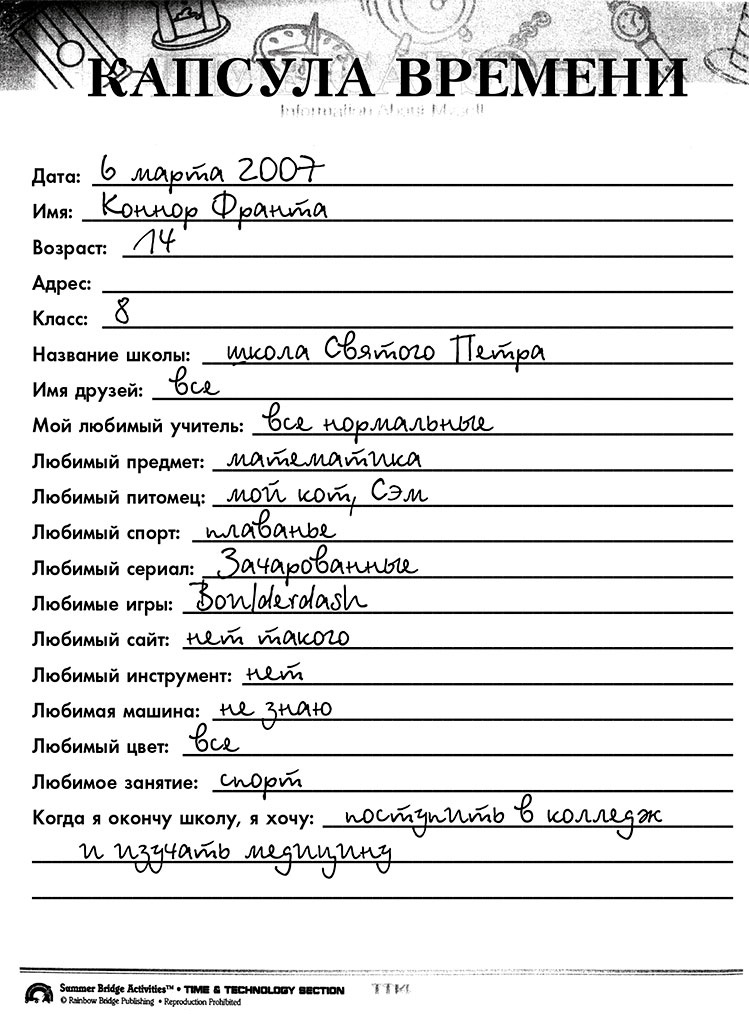 КАПСУЛА ВРЕМЕНИ
Information About Myself
Дата: 6 марта 2007
Имя: Коннор Франта
Возраст: 14
Адрес:
Класс: 8
Название школы: школа Святого Петра
Имя друзей: все
Мой любимый учитель: все нормальные
Любимый предмет: математика
Любимый питомец: мой кот, Сэм
Любимый спорт: плаванье
Любимый сериал: Зачарованные
Любимые игры: Bon/derdash
Любимый сайт: нет такого
Любимый инструмент: нет
Любимая машина: не знаю
Любимый цвет: все
Любимое занятие: спорт
Когда я окончу школу, я хочу: поступить в колледж
и изучать медицину
Summer Bridge Activities™ • TIME & TECHNOLOGY SECTION
© Rainbow Bridge Publishing • Reproduction Prohibited